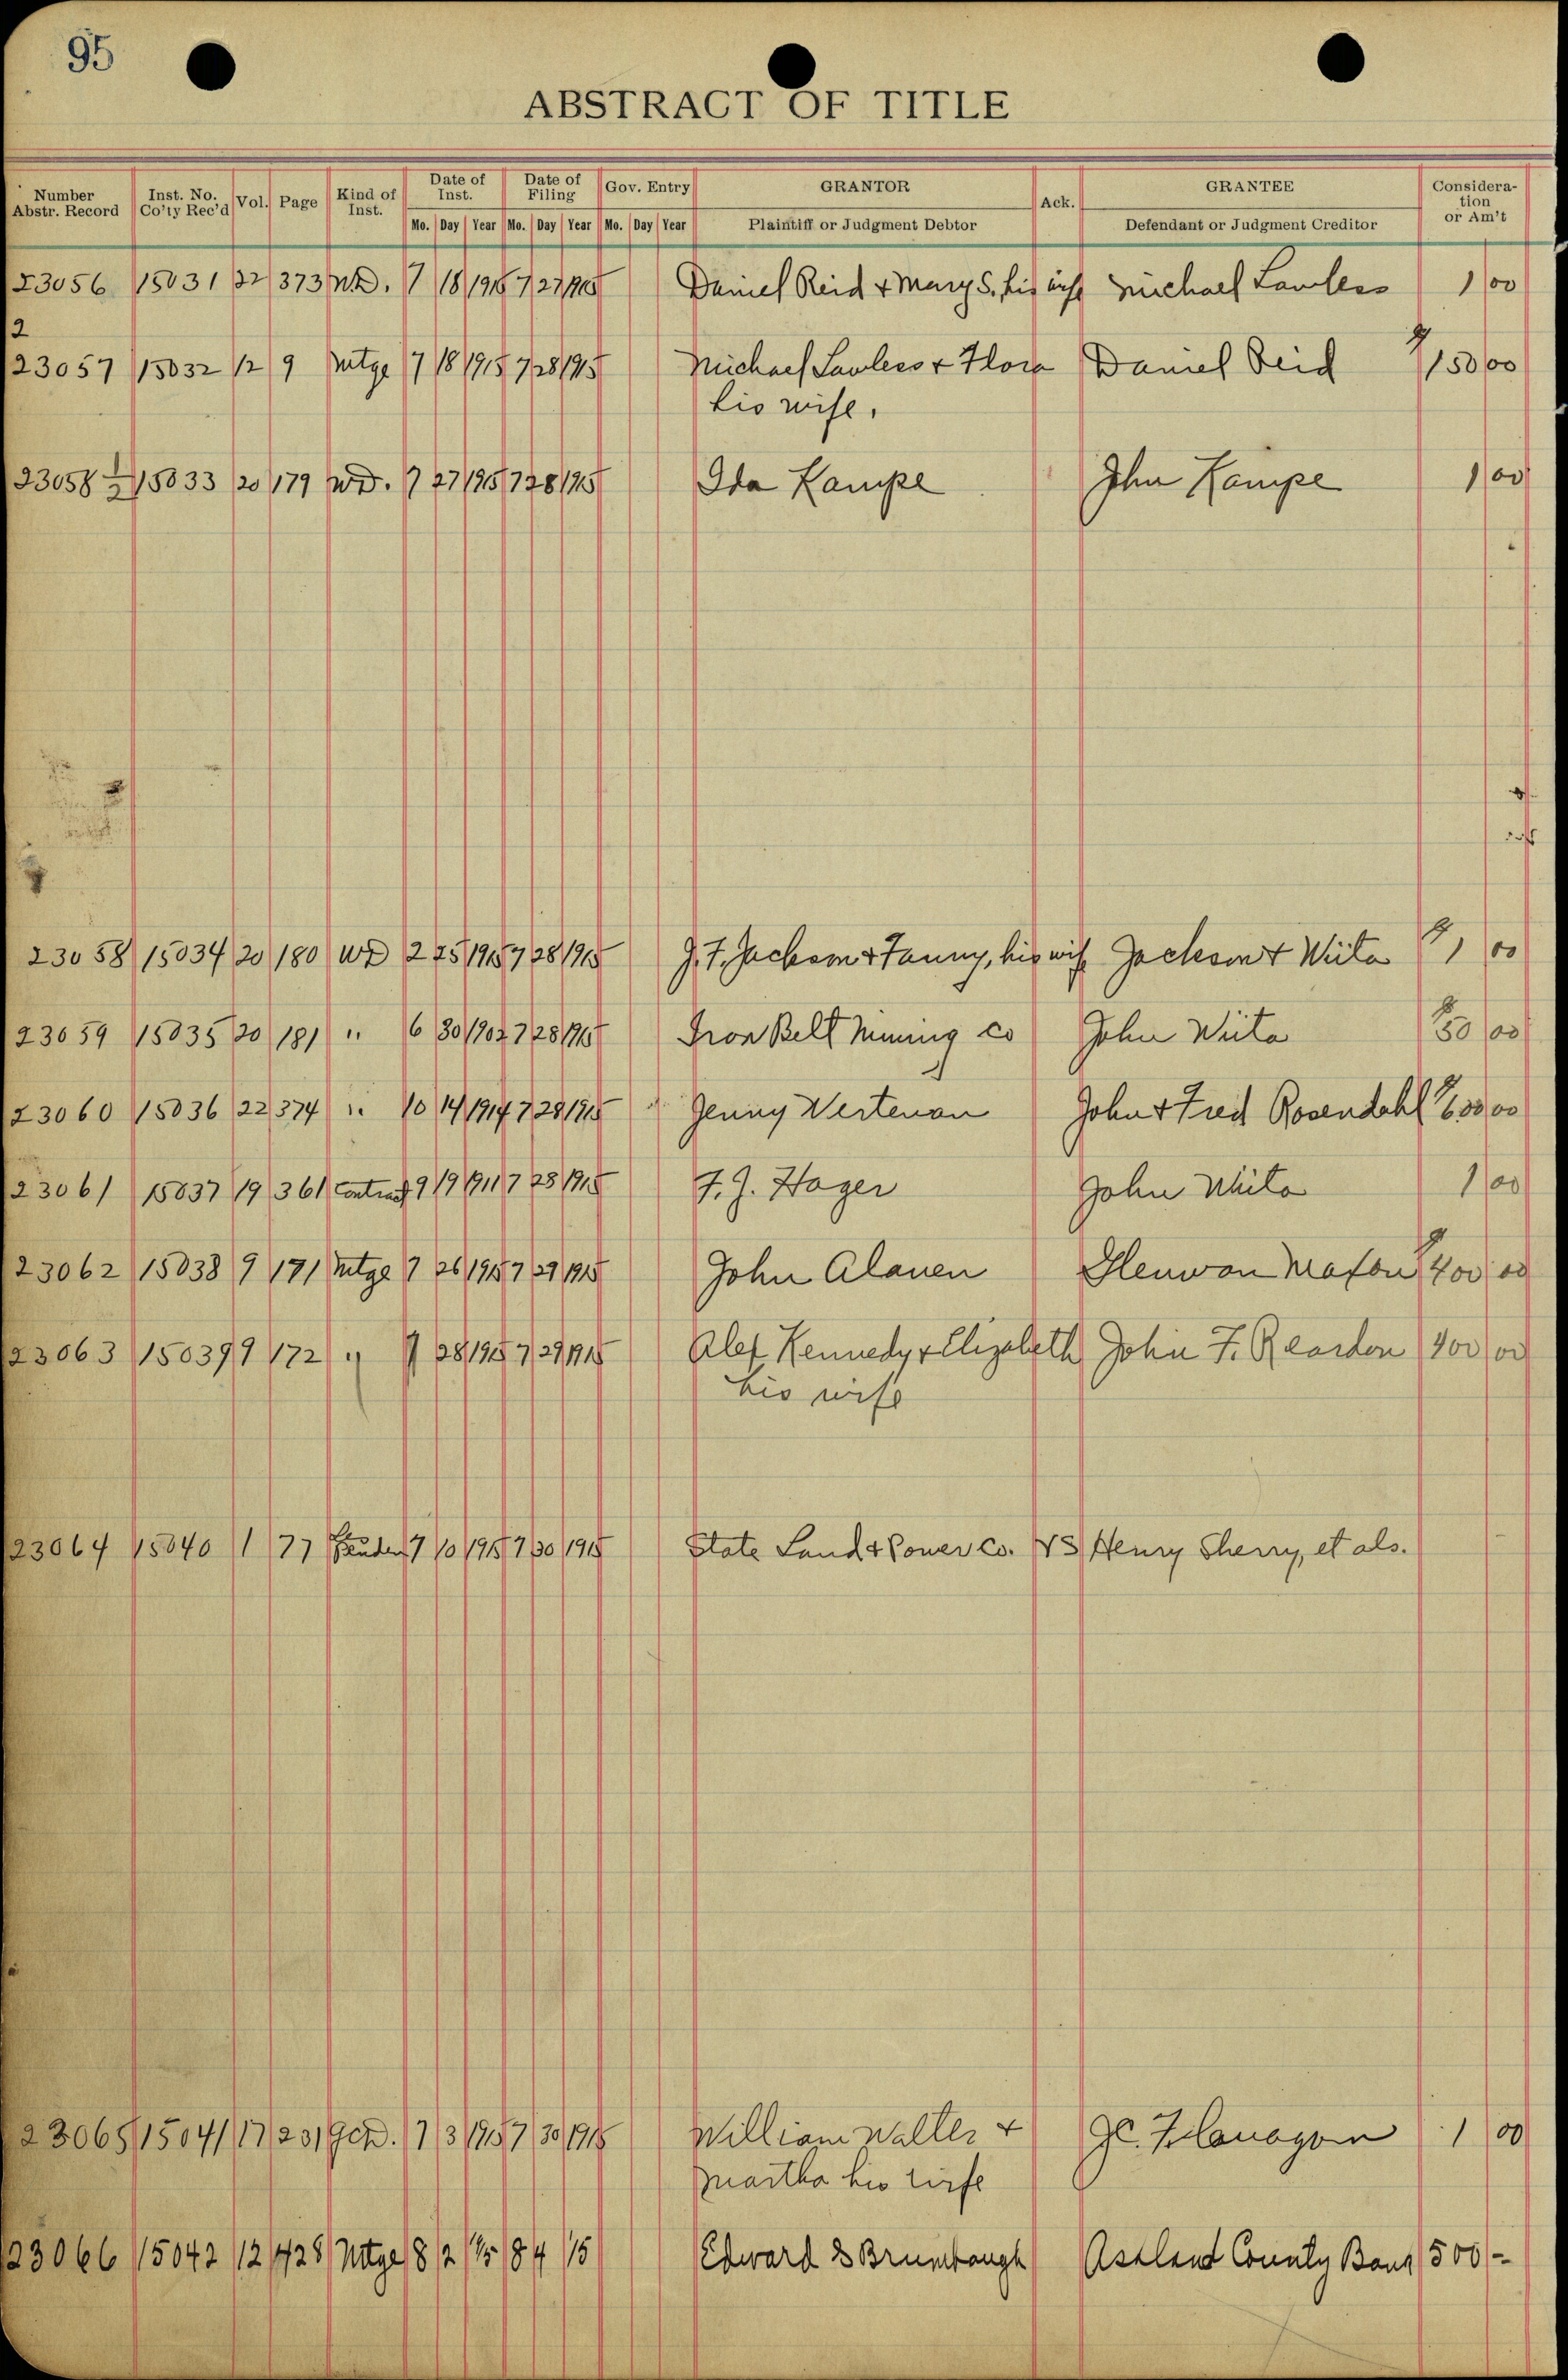 95
ABSTRACT OF TITLE
Number Abstr. Record Inst. No. Co'ty Rec'd Vol. Page Kind of Inst. Date of Inst. Date of Filing Gov. Entry GRANTOR Ack. GRANTEE Consideration or Am't
Mo. Day Year Mo. Day Year Mo. Day Year Plaintiff or Judgment Debtor Defendant or Judgment Creditor
23056 15031 22 373 WD. 7 18 1915 7 27 1915 Daniel Reid & Mary S. his wife Michael Lawless 1 00
2
23057 15032 12 9 Mtge 7 18 1915 7 28 1915 Michael Lawless & Flora Daniel Reid 150 00
his wife.
23058 1/2 15033 20 179 WD. 7 27 1915 7 28 1915 Ida Kampe John Kampe 1 00
23058 15034 20 180 WD 2 25 1915 7 28 1915 J. F. Jackson & Fanny, his wife Jackson & Wiita 1 00
23059 15035 20 181 " 6 30 1902 7 28 1915 Iron Belt Mining Co John Wiita 50 00
23060 15036 22 374 " 10 14 1914 7 28 1915 Jenny Wertenan John & Fred Rosendahl 600 00
23061 15037 19 361 Contract 9 19 1911 7 28 1915 F. J. Hager John Wiita 1 00
23062 15038 9 171 Mtge 7 26 1915 7 29 1915 John Alanen 400 00
23063 15039 9 172 " 7 28 1915 7 29 1915 Alex Kennedy & Elizabeth John F. Reardon 400 00
his wife
23064 15040 1 77 7 10 1915 7 30 1915 State Land & Power Co. VS Henry Sherry, et als.
23065 15041 17 231 QCD. 7 3 1915 7 30 1915 William Walter & 1 00
Martha his wife
23066 15042 12 428 Mtge 8 2 15 8 4 15 Edward D Brumbaugh Ashland County Bank 500 -